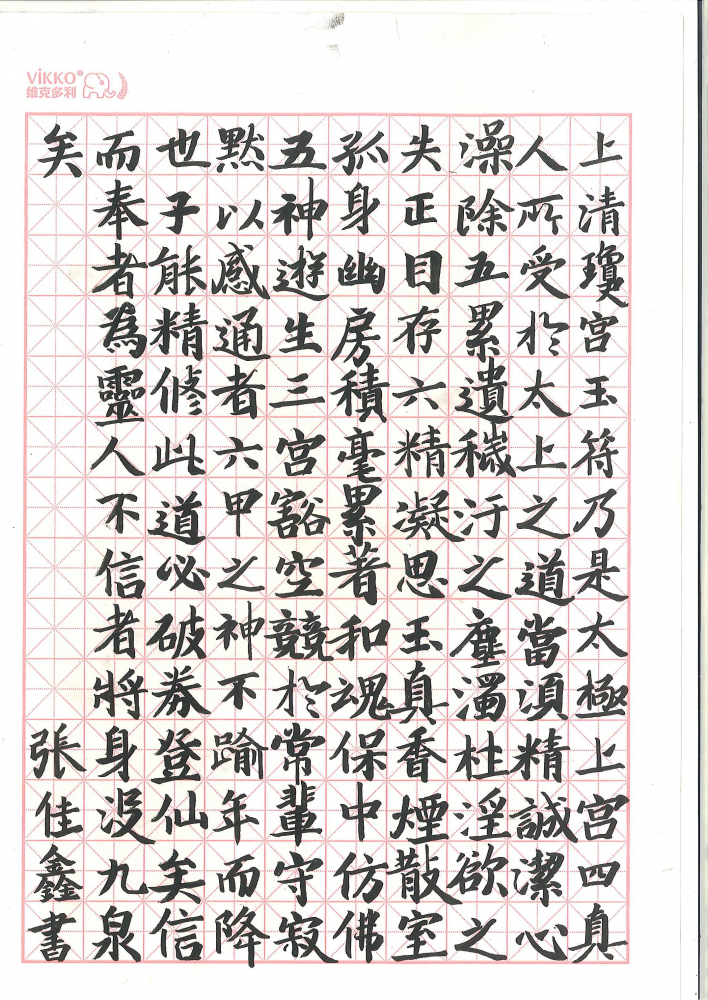 ViKKO®
维克多利
上清瓊宮玉符乃是太極上宮四真
人所受於太上之道當須精誠潔心
澡除五累遺穢汙之塵濁杜淫欲之
失正目存六精凝思玉真香煙散室
孤身幽房積毫累著和魂保中仿佛
五神遊生三宮豁空競於常輩守寂
默以感通者六甲之神不踰年而降
也子能精修此道必破券登仙矣信
而奉者為靈人不信者將身没九泉
矣
張佳鑫書